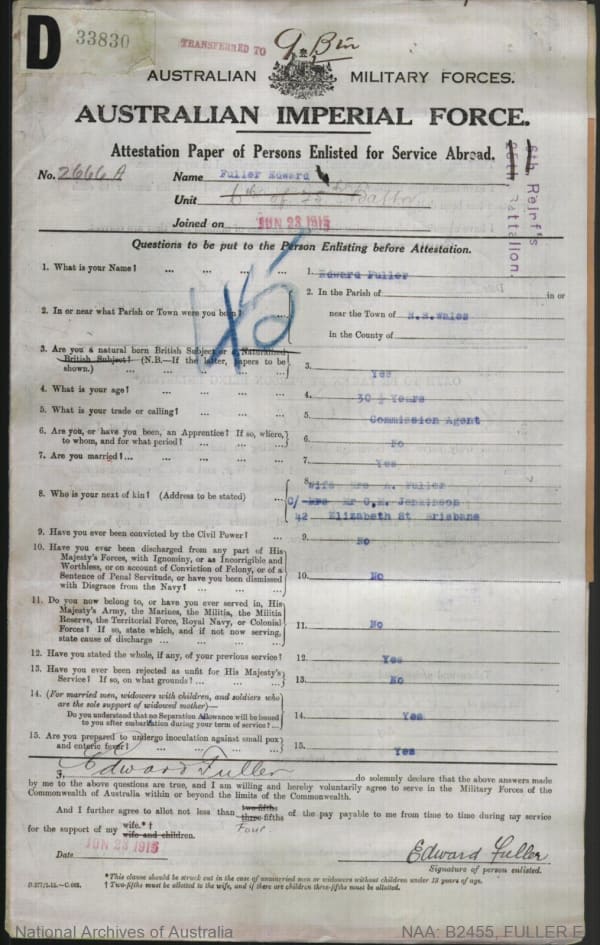 D 33830
TRANSFERRED TO 9 Bin
AUSTRALIAN MILITARY FORCES.
AUSTRALIAN IMPERIAL FORCE.
Attestation Paper of Persons Enlisted for Service Abroad.
6th Reinf's
25th Battalion.
No. 2666 A Name Fuller Edward
Unit 6th of 25
Joined on JUN 23 1915
Questions to be put to the Person Enlisting before Attestation.
45
1. What is your Name? ... ... ... ... 1. Edward Fuller
2. In or near what Parish or Town were you born? ... 2. In the Parish of in or
near the Town of N.S.Wales
in the County of
3. Are you a natural born British Subject or a Naturalized
British Subject? (N.B.—If the latter, papers to be
shown.) ... ... ... ... 3. Yes
4. What is your age? ... ... ... ... 4. 30 ½ Years
5. What is your trade or calling? ... ... ... 5. Commission Agent
6. Are you, or have you been, an Apprentice? If so, where,
to whom, and for what period? ... ... ... 6. No
7. Are you married?... ... ... ... ... 7. Yes
8. Who is your next of kin? (Address to be stated) ... 8. Wife Mrs A. Fuller
C/- Mrs Mr C.H. Jenkinson
42 Elizabeth St Brisbane
9. Have you ever been convicted by the Civil Power? ... 9. No
10. Have you ever been discharged from any part of His
Majesty's Forces, with Ignominy, or as Incorrigible and
Worthless, or on account of Conviction of Felony, or of a
Sentence of Penal Servitude, or have you been dismissed
with Disgrace from the Navy? ... ... ... 10. No
11. Do you now belong to, or have you ever served in, His
Majesty's Army, the Marines, the Militia, the Militia
Reserve, the Territorial Force, Royal Navy, or Colonial
Forces? If so, state which, and if not now serving,
state cause of discharge ... ... ... ... 11. No
12. Have you stated the whole, if any, of your previous service? 12. Yes
13. Have you ever been rejected as unfit for His Majesty's
Service? If so, on what grounds? ... ... ... 13. No
14. (For married men, widowers with children, and soldiers who
are the sole support of widowed mother)—
Do you understand that no Separation Allowance will be issued
to you after embarkation during your term of service? ... 14. Yes
15. Are you prepared to undergo inoculation against small pox
and enteric fever? ... ... ... ... 15. Yes
I, Edward Fuller do solemnly declare that the above answers made
by me to the above questions are true, and I am willing and hereby voluntarily agree to serve in the Military Forces of the
Commonwealth of Australia within or beyond the limits of the Commonwealth.
And I further agree to allot not less than two-fifths
three-fifths of the pay payable to me from time to time during my service
Four
for the support of my wife.*†
wife and children.
Date JUN 23 1915 Edward Fuller
Signature of person enlisted.
*This clause should be struck out in the case of unmarried men or widowers without children under 18 years of age.
† Two-fifths must be allotted to the wife, and if there are children three-fifths must be allotted.
National Archives of Australia NAA: B2455, FULLER E